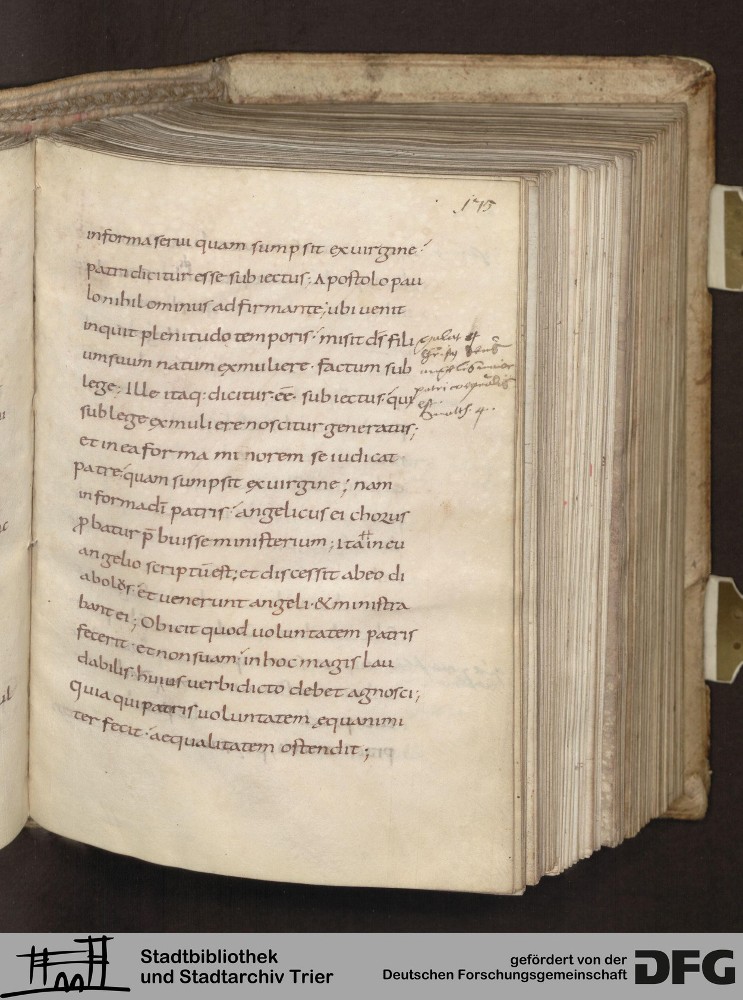 175
informa serui quam sumpsit exuirgine.
patri dicitur esse subiectus; Apostolo pau
lo nihilominus adfirmante; ubi uenit
inquit plenitudo temporis. misit ds fili
um suum natum ex muliere. factum sub
lege; Ille itaq: dicitur ee subiectus. qui
sub lege ex muliere noscitur generatus;
et in ea forma minorem se iudicat
patre. quam sumpsit ex uirgine; nam
in forma di patris. angelicus ei chorus
p batur p buisse ministerium; ita in eu
angelio scriptu est; et discessit ab eo di
abolos. et uenerunt angeli. & ministra
bant ei; Obicit quod uoluntatem patris
fecerit. et non suam. in hoc magis lau
dabilis. huius uerbi dicto debet agnosci;
quia qui patris uoluntatem equanimi
ter fecit. aequalitatem ostendit;
Stadtbibliothek
und Stadtarchiv Trier
gefördert von der
Deutschen Forschungsgemeinschaft
DFG